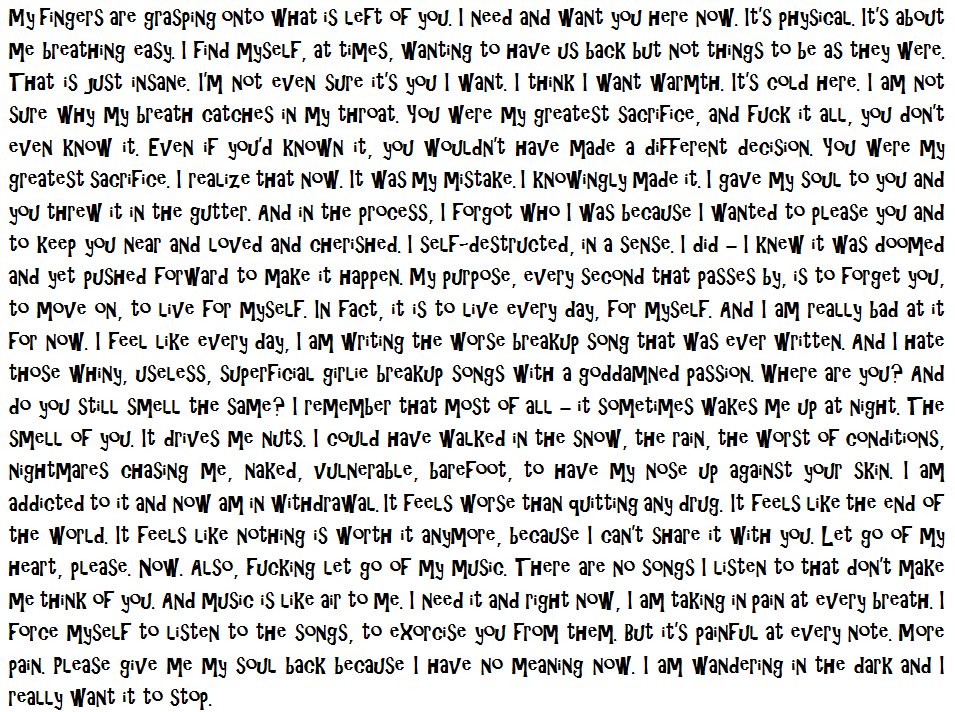 My fingers are grasping onto what is left of you. I need and want you here now. It's physical. It's about
me breathing easy. I find myself, at times, wanting to have us back but not things to be as they were.
That is just insane. I'm not even sure it's you I want. I think I want warmth. It's cold here. I am not
sure why my breath catches in my throat. You were my greatest sacrifice, and fuck it all, you don't
even know it. Even if you'd known it, you wouldn't have made a different decision. You were my
greatest sacrifice. I realize that now. It was my mistake. I knowingly made it. I gave my soul to you and
you threw it in the gutter. And in the process, I forgot who I was because I wanted to please you and
to keep you near and loved and cherished. I self-destructed, in a sense. I did – I knew it was doomed
and yet pushed forward to make it happen. My purpose, every second that passes by, is to forget you,
to move on, to live for myself. In fact, it is to live every day, for myself. And I am really bad at it
for now. I feel like every day, I am writing the worse breakup song that was ever written. And I hate
those whiny, useless, superficial girlie breakup songs with a goddamned passion. Where are you? And
do you still smell the same? I remember that most of all – it sometimes wakes me up at night. The
smell of you. It drives me nuts. I could have walked in the snow, the rain, the worst of conditions,
nightmares chasing me, naked, vulnerable, barefoot, to have my nose up against your skin. I am
addicted to it and now am in withdrawal. It feels worse than quitting any drug. It feels like the end of
the world. It feels like nothing is worth it anymore, because I can't share it with you. Let go of my
heart, please. Now. Also, fucking let go of my music. There are no songs I listen to that don't make
me think of you. And music is like air to me. I need it and right now, I am taking in pain at every breath. I
force myself to listen to the songs, to exorcise you from them. But it's painful at every note. More
pain. Please give me my soul back because I have no meaning now. I am wandering in the dark and I
really want it to stop.